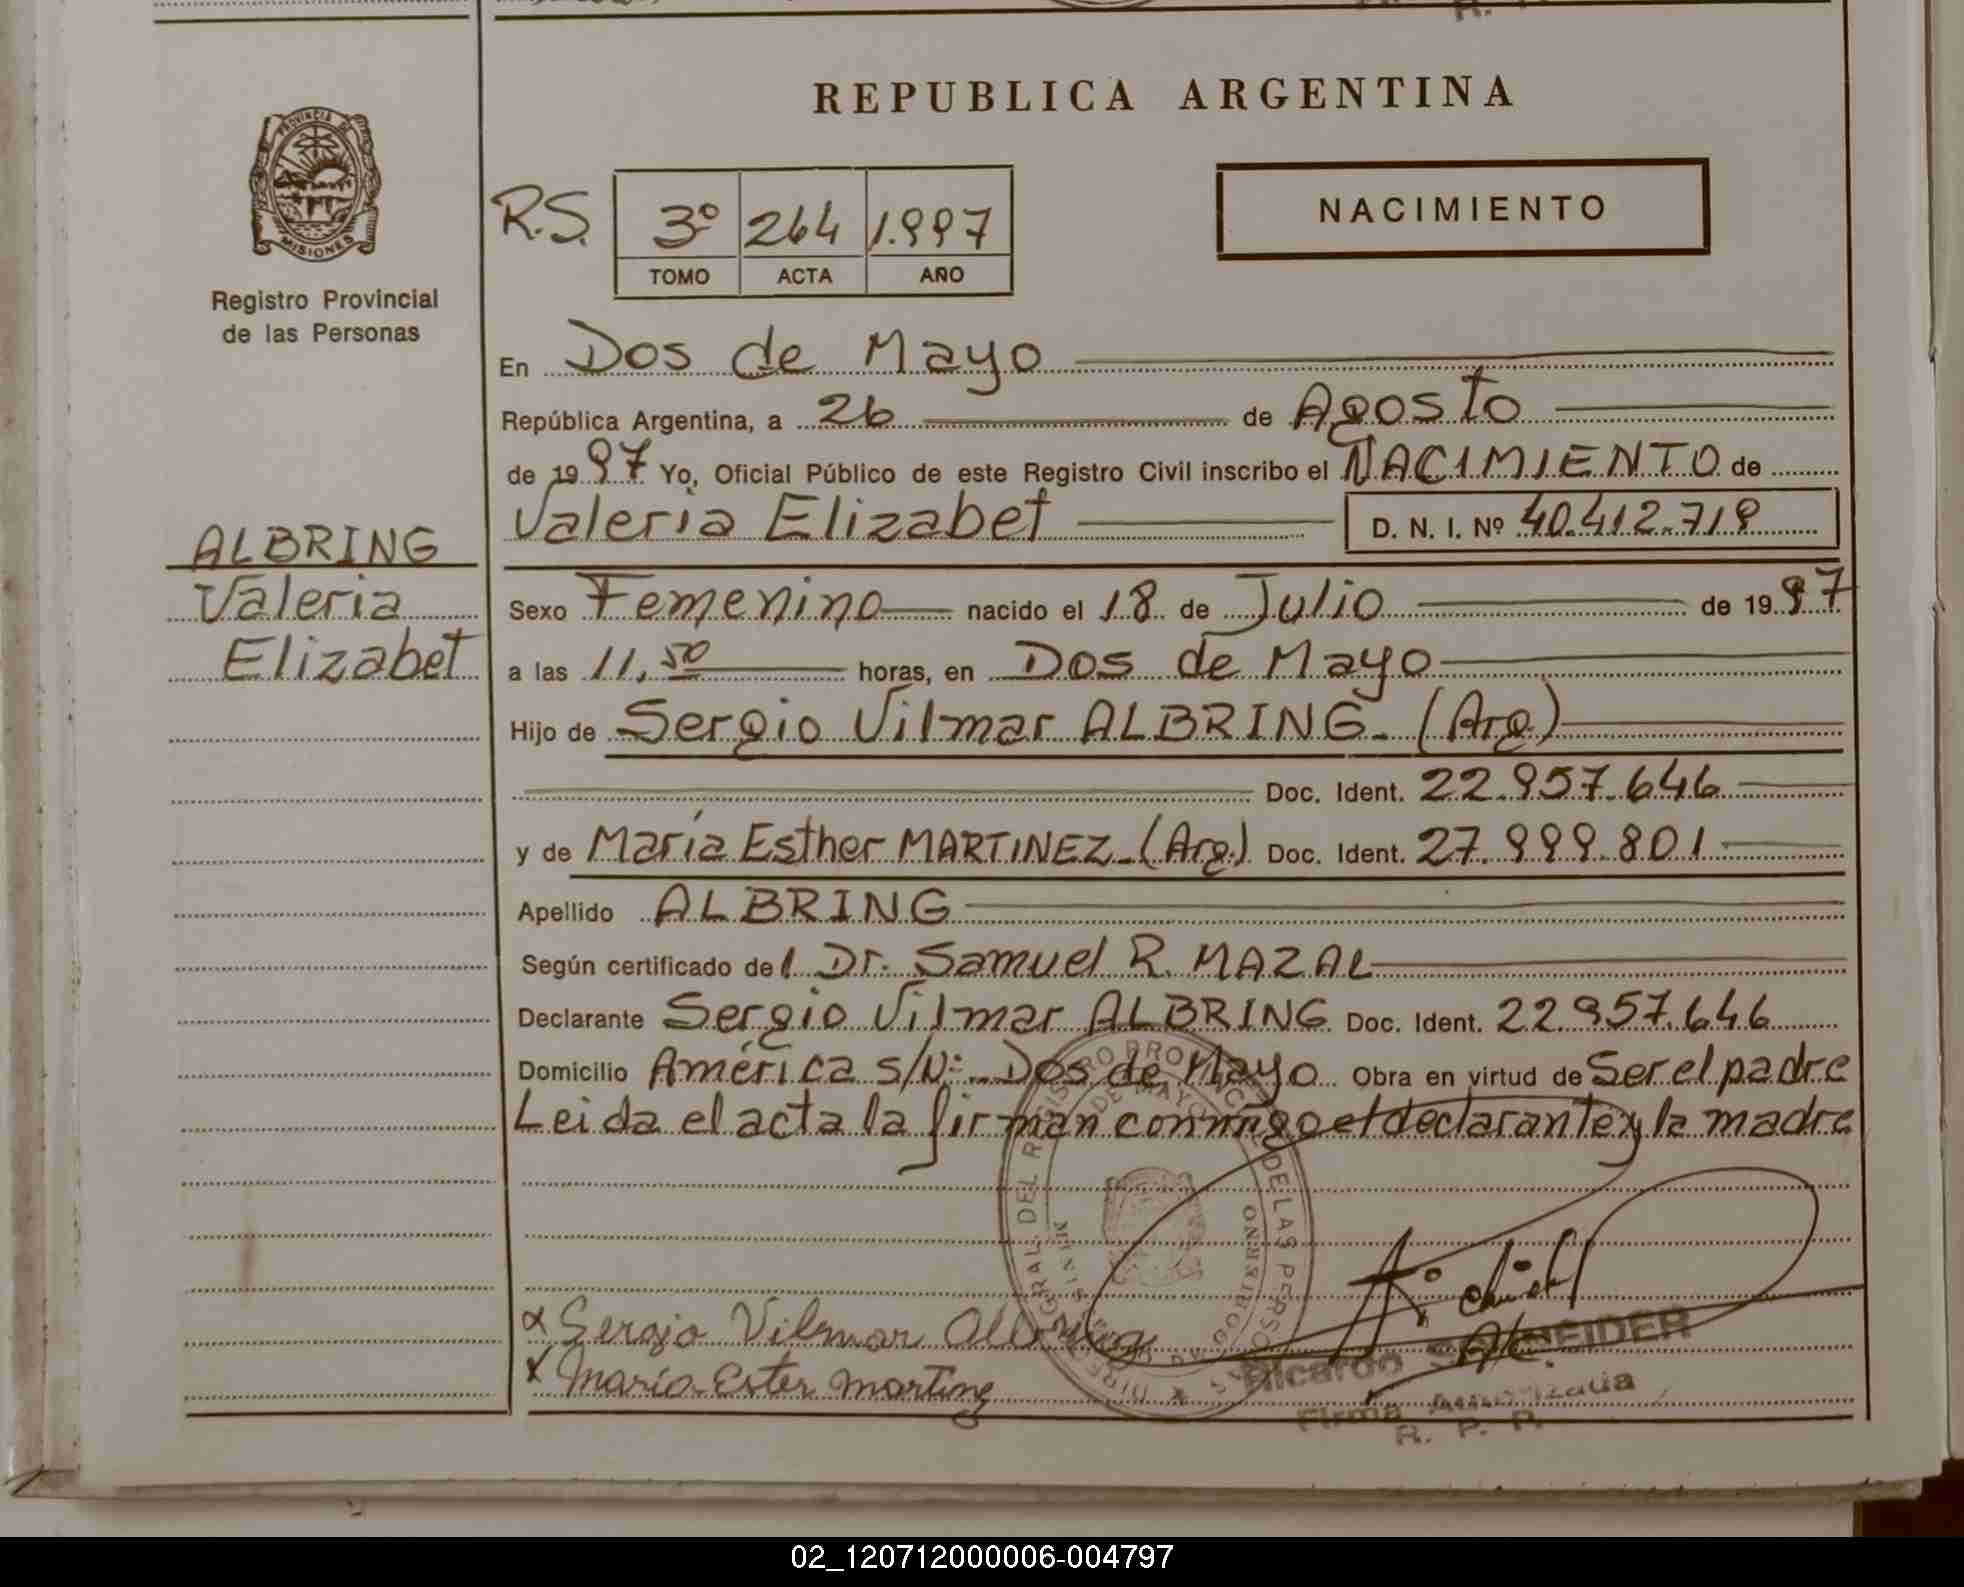 REPUBLICA ARGENTINA
PROVINCIA DE
MISIONES
Registro Provincial
de las Personas
R.S. 3º 264 1.997
TOMO ACTA AÑO
NACIMIENTO
En Dos de Mayo
República Argentina, a 26 de Agosto
de 1997 Yo, Oficial Público de este Registro Civil inscribo el NACIMIENTO de
Valeria Elizabet D. N. I. Nº 40.412.719
ALBRING
Valeria
Elizabet
Sexo Femenino nacido el 18 de Julio de 1997
a las 11,50 horas, en Dos de Mayo
Hijo de Sergio Vilmar ALBRING. (Arg.)
Doc. Ident. 22.957.646
y de María Esther MARTINEZ. (Arg.) Doc. Ident. 27.999.801
Apellido ALBRING
Según certificado del Dr. Samuel R. MAZAL
Declarante Sergio Vilmar ALBRING Doc. Ident. 22.957.646
Domicilio América s/Nº: Dos de Mayo Obra en virtud de Ser el padre
Leida el acta la firman conmigo el declarante y la madre
x Sergio Vilmar Albring
x Maria Ester Martinez
Ricardo SCHNEIDER
Firma Autorizada
R. P. P.
02_120712000006-004797